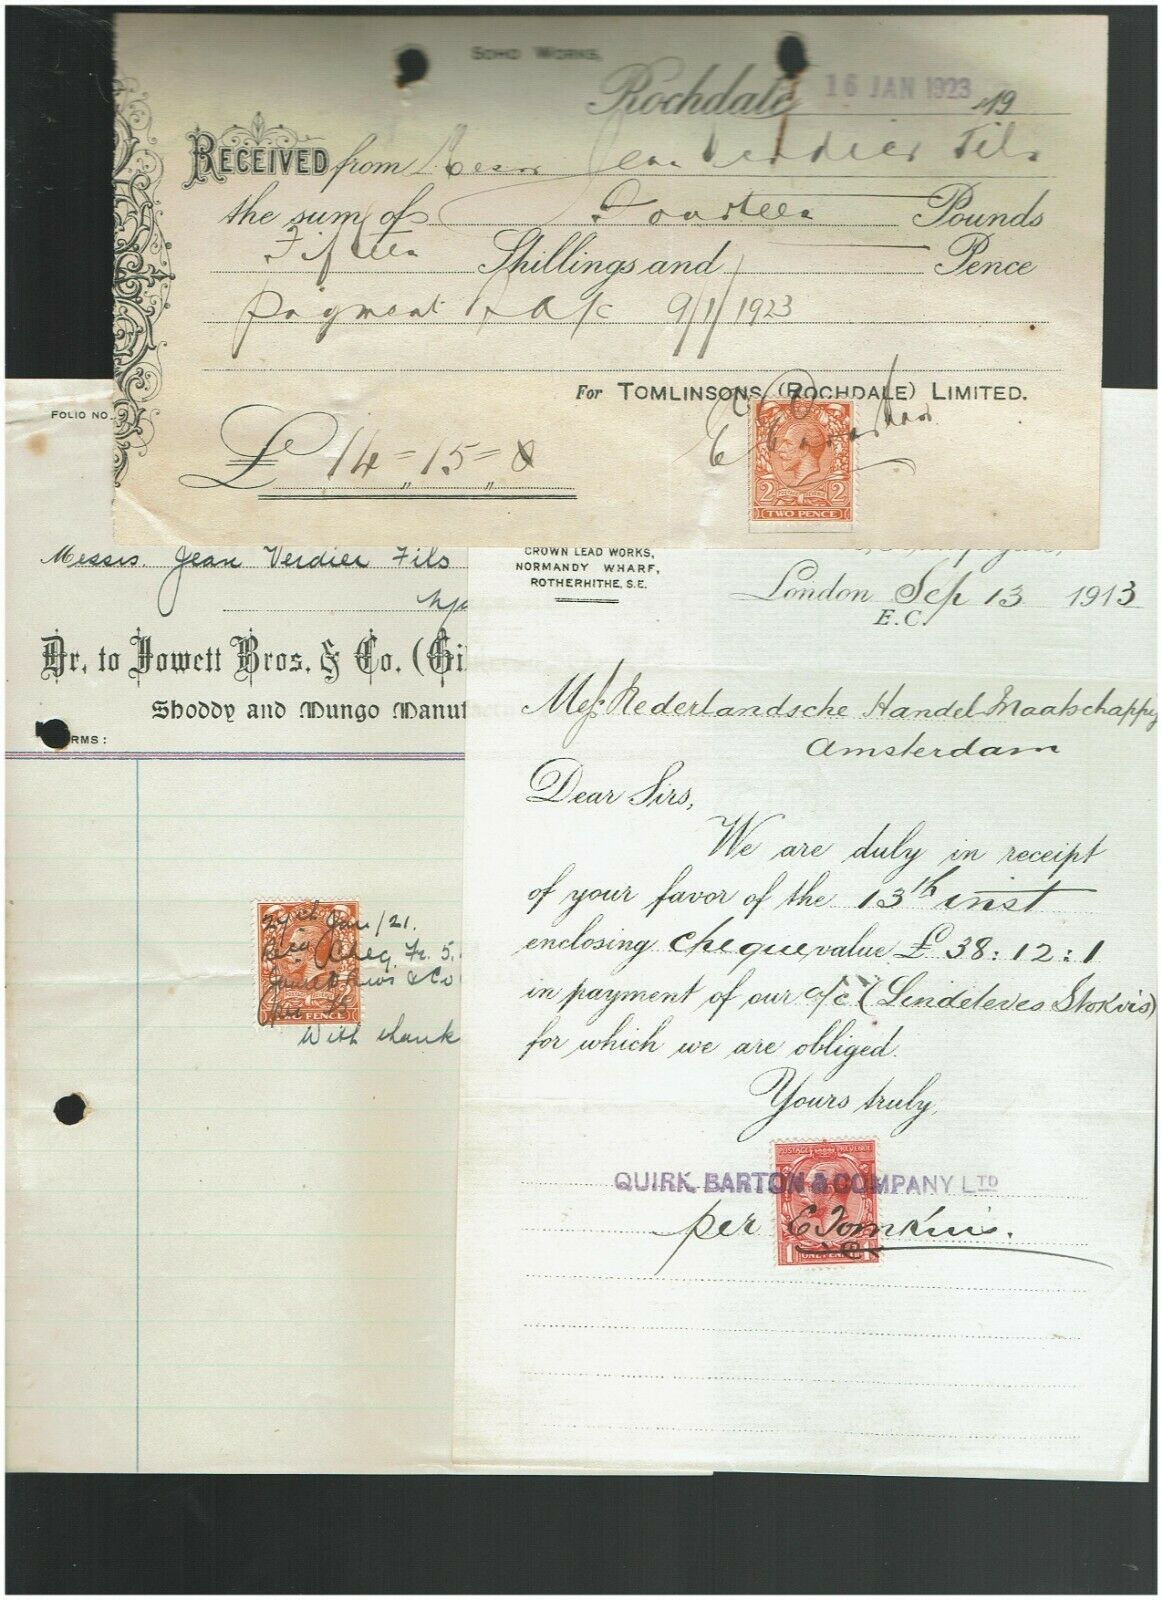 SOHO WORKS,
Rochdale, 16 JAN 1923 19
RECEIVED from Messrs Jean Verdier Fils
the sum of Fourteen Pounds
Fifteen Shillings and Pence
payment A/c 9/1/1923
For TOMLINSONS (ROCHDALE) LIMITED.
£ 14 = 15 = 0
2 2
TWO PENCE
FOLIO NO.
Messrs. Jean Verdier Fils
Dr. to Jowett Bros. & Co. (Gil
Shoddy and Mungo Manuf
TERMS:
29th Jan/21.
Cheq Fr. 5.
& Co
PENCE
With thank
CROWN LEAD WORKS,
NORMANDY WHARF,
ROTHERHITHE, S.E.
London Sep 13 1913
E.C.
Mess. Nederlandsche Handel Maatschappy
Amsterdam
Dear Sirs,
We are duly in receipt
of your favor of the 13th inst
enclosing cheque value £ 38:12:1
in payment of our a/c (Lindeteves Stokvis)
for which we are obliged.
Yours truly,
POSTAGE REVENUE
QUIRK, BARTON & COMPANY LTD
per E Tomkins.
1 ONE PENNY 1